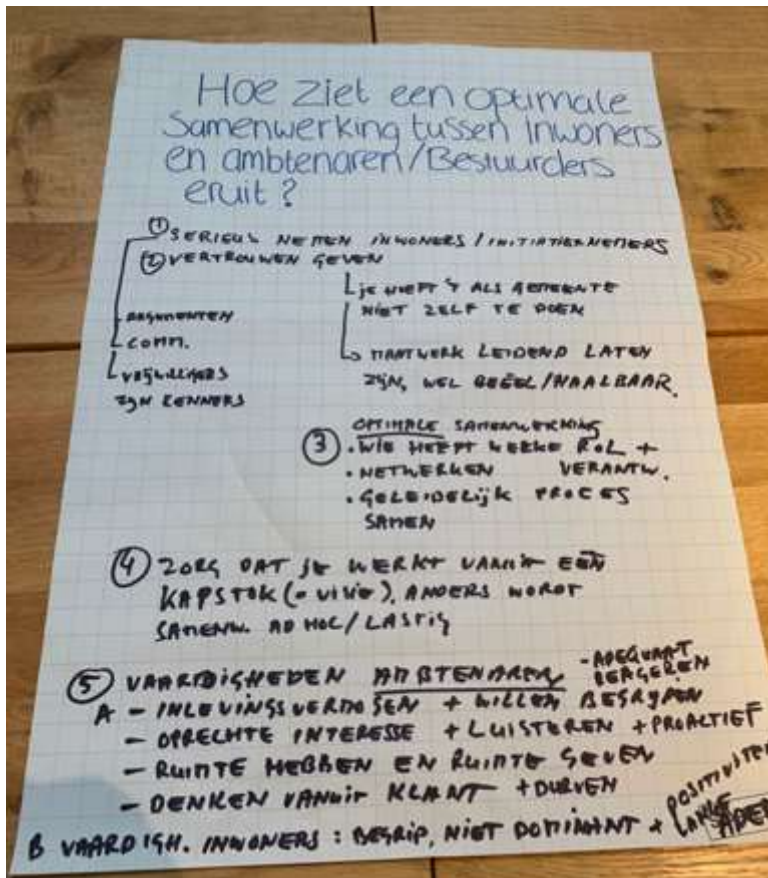 Hoe ziet een optimale
samenwerking tussen inwoners
en ambtenaren/Bestuurders
eruit?
① SERIEUS NEMEN INWONERS/INITIATIEFNEMERS
② VERTROUWEN GEVEN
JE HOEFT 'T ALS GEMEENTE
NIET ZELF TE DOEN
ARGUMENTEN
COMM.
VRIJWILLIGERS
ZIJN KENNERS
MAATWERK LEIDEND LATEN
ZIJN, WEL REËEL/HAALBAAR.
③ OPTIMALE SAMENWERKING
• WIE HEEFT WELKE ROL +
VERANTW.
• NETWERKEN
• GELEIDELIJK PROCES
SAMEN
④ ZORG DAT JE WERKT VANUIT EEN
KAPSTOK (= VISIE), ANDERS WORDT
SAMENW. AD HOC/LASTIG
⑤ VAARDIGHEDEN AMBTENAREN
- ADEQUAAT
REAGEREN
A - INLEVINGSVERMOGEN + WILLEN BEGRYPEN
- OPRECHTE INTERESSE + LUISTEREN + PROACTIEF
- RUIMTE HEBBEN EN RUIMTE GEVEN
- DENKEN VANUIT KLANT + DURVEN
B VAARDIGH. INWONERS: BEGRIP, NIET DOMINANT + LANGE ADEM
POSITIVITEIT